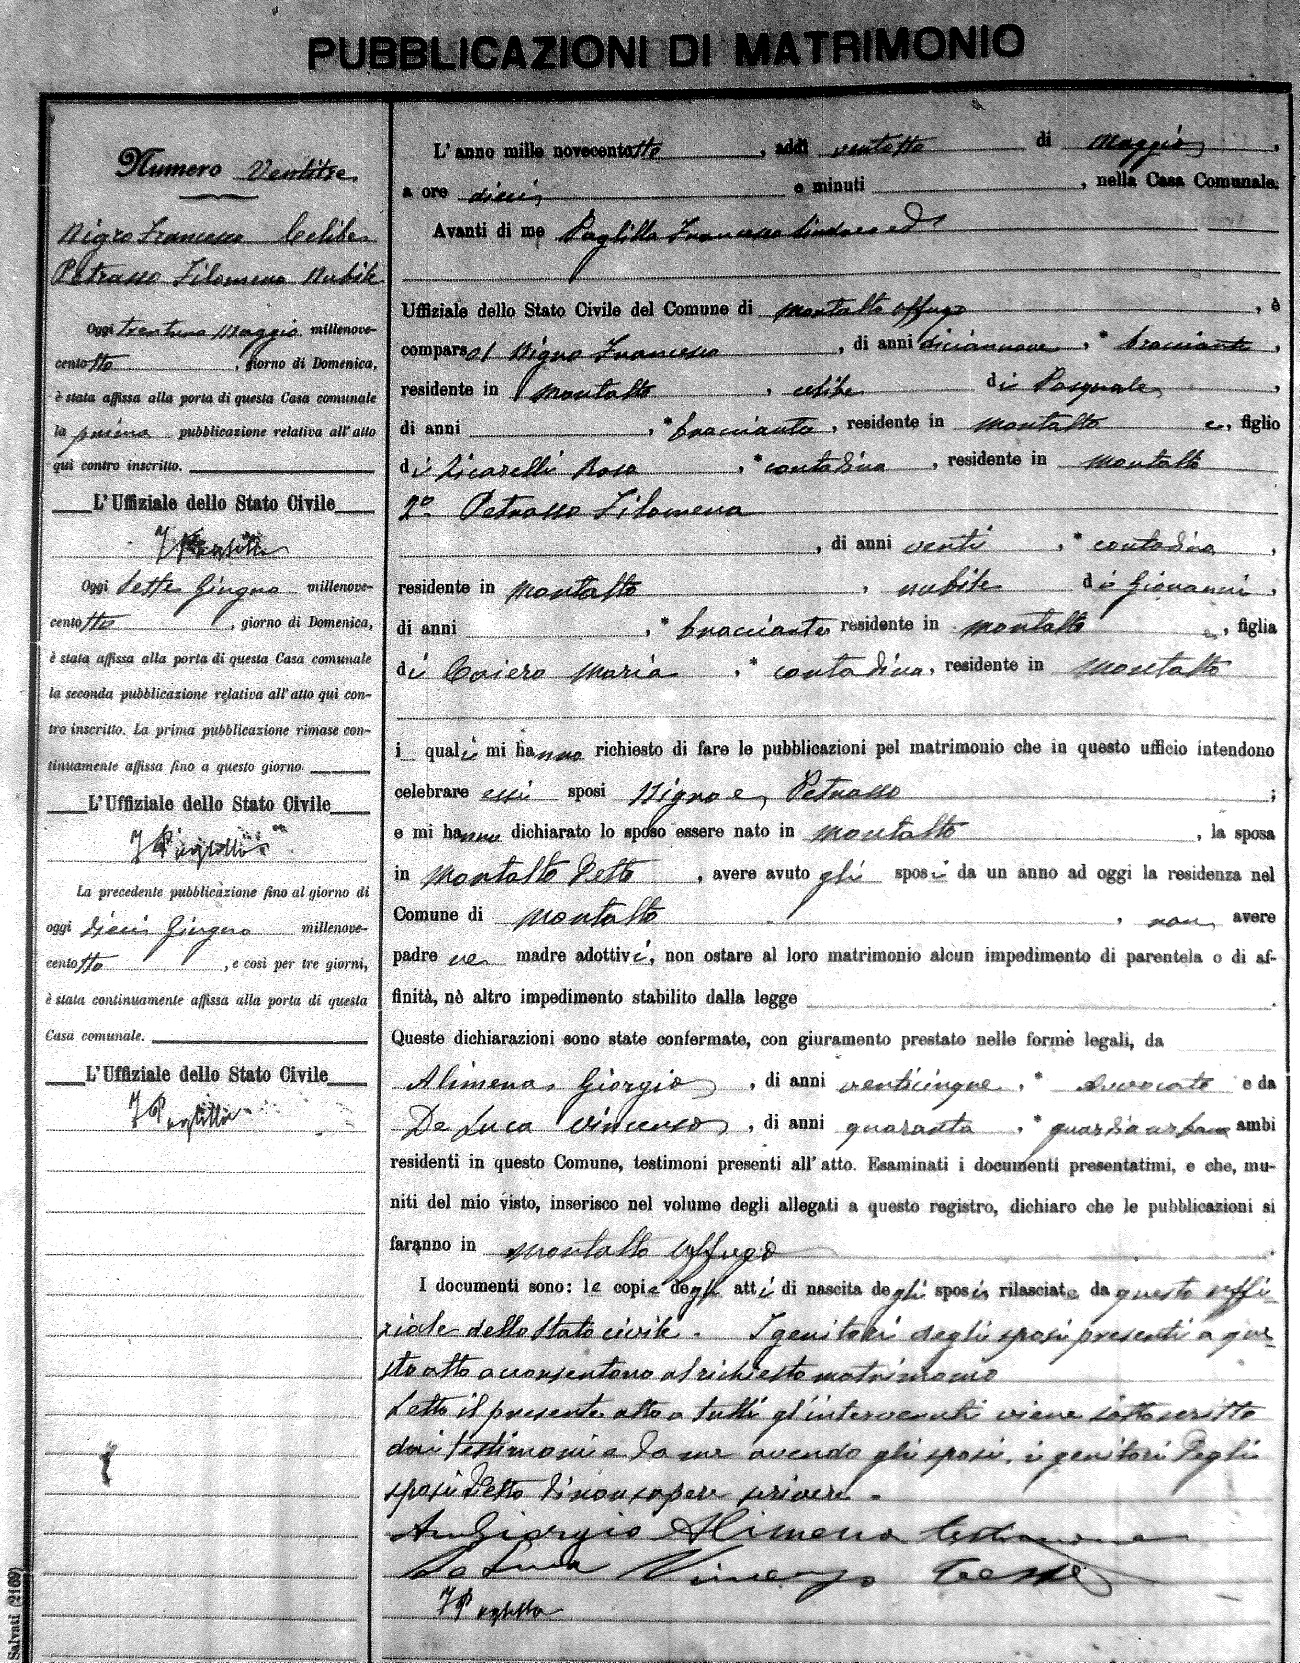 PUBBLICAZIONI DI MATRIMONIO
Numero Ventitre
Nigro Francesco Celibe
Petrasso Filomena Nubile
Oggi trentuno Maggio millenove-
centotto, giorno di Domenica,
è stata affissa alla porta di questa Casa comunale
la prima pubblicazione relativa all'atto
qui contro inscritto.
L'Uffiziale dello Stato Civile
F Paglilla
Oggi Sette Giugno millenove-
centotto, giorno di Domenica,
è stata affissa alla porta di questa Casa comunale
la seconda pubblicazione relativa all'atto quì con-
tro inscritto. La prima pubblicazione rimase con-
tinuamente affissa fino a questo giorno.
L'Uffiziale dello Stato Civile
F Paglilla
La precedente pubblicazione fino al giorno di
oggi Dieci Giugno millenove-
centotto, e così per tre giorni,
è stata continuamente affissa alla porta di questa
Casa comunale.
L'Uffiziale dello Stato Civile
F Paglilla
Salvati (2169)
L'anno mille novecentotto, addì ventotto di Maggio,
a ore dieci e minuti, nella Casa Comunale.
Avanti di me Paglilla Francesco Sindaco ed
Uffiziale dello Stato Civile del Comune di Montalto Uffugo, è
comparso 1 Nigro Francesco, di anni diciannove, * bracciante,
residente in Montalto, celibe di Pasquale,
di anni, * bracciante, residente in Montalto e, figlio
di Zicarelli Rosa, * contadina, residente in Montalto
2° Petrasso Filomena
, di anni venti, * contadina,
residente in Montalto, nubile di Giovanni,
di anni, * bracciante residente in Montalto e, figlia
di Caiero Maria, * contadina, residente in Montalto
i quali mi hanno richiesto di fare le pubblicazioni pel matrimonio che in questo ufficio intendono
celebrare essi sposi Nigro e Petrasso;
e mi hanno dichiarato lo sposo essere nato in Montalto, la sposa
in Montalto Detto, avere avuto gli sposi da un anno ad oggi la residenza nel
Comune di Montalto, non avere
padre ne madre adottivi, non ostare al loro matrimonio alcun impedimento di parentela o di af-
finità, nè altro impedimento stabilito dalla legge.
Queste dichiarazioni sono state confermate, con giuramento prestato nelle forme legali, da
Alimena Giorgio, di anni venticinque, * Avvocato e da
De Luca Vincenzo, di anni quaranta, * guardia urbana ambi
residenti in questo Comune, testimoni presenti all'atto. Esaminati i documenti presentatimi, e che, mu-
niti del mio visto, inserisco nel volume degli allegati a questo registro, dichiaro che le pubblicazioni si
faranno in Montalto Uffugo.
I documenti sono: le copie degli atti di nascita degli sposi rilasciate da questo uffi-
ziale dello stato civile. I genitori degli sposi presenti a que-
sto atto acconsentono al richiesto matrimonio
Letto il presente atto a tutti gl'intervenuti viene sottoscritto
dai testimoni e da me avendo gli sposi, i genitori degli
sposi detto di non sapere scrivere.
Avv Giorgio Alimena testimone
De Luca Vincenzo Teste
F Paglilla